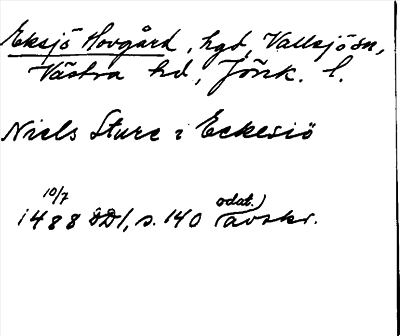 Eksjö Hovgård, hgd, Vallsjö sn,
Västra hd, Jönk. l.
Niels Sture i Eckesiö
10/7 odat.)
1488 ÖD1, s. 140 avskr.